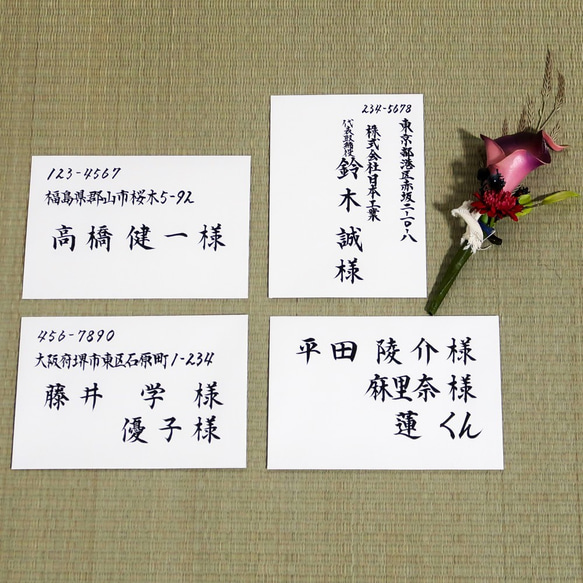 123-4567
福島県郡山市桜木5-92
高橋健一様
234-5678
東京都港区赤坂二-一〇-八
株式会社日本工業
代表取締役
鈴木誠様
456-7890
大阪府堺市東区石原町1-234
藤井 学 様
優子様
平田 陵介様
麻里奈様
蓮くん